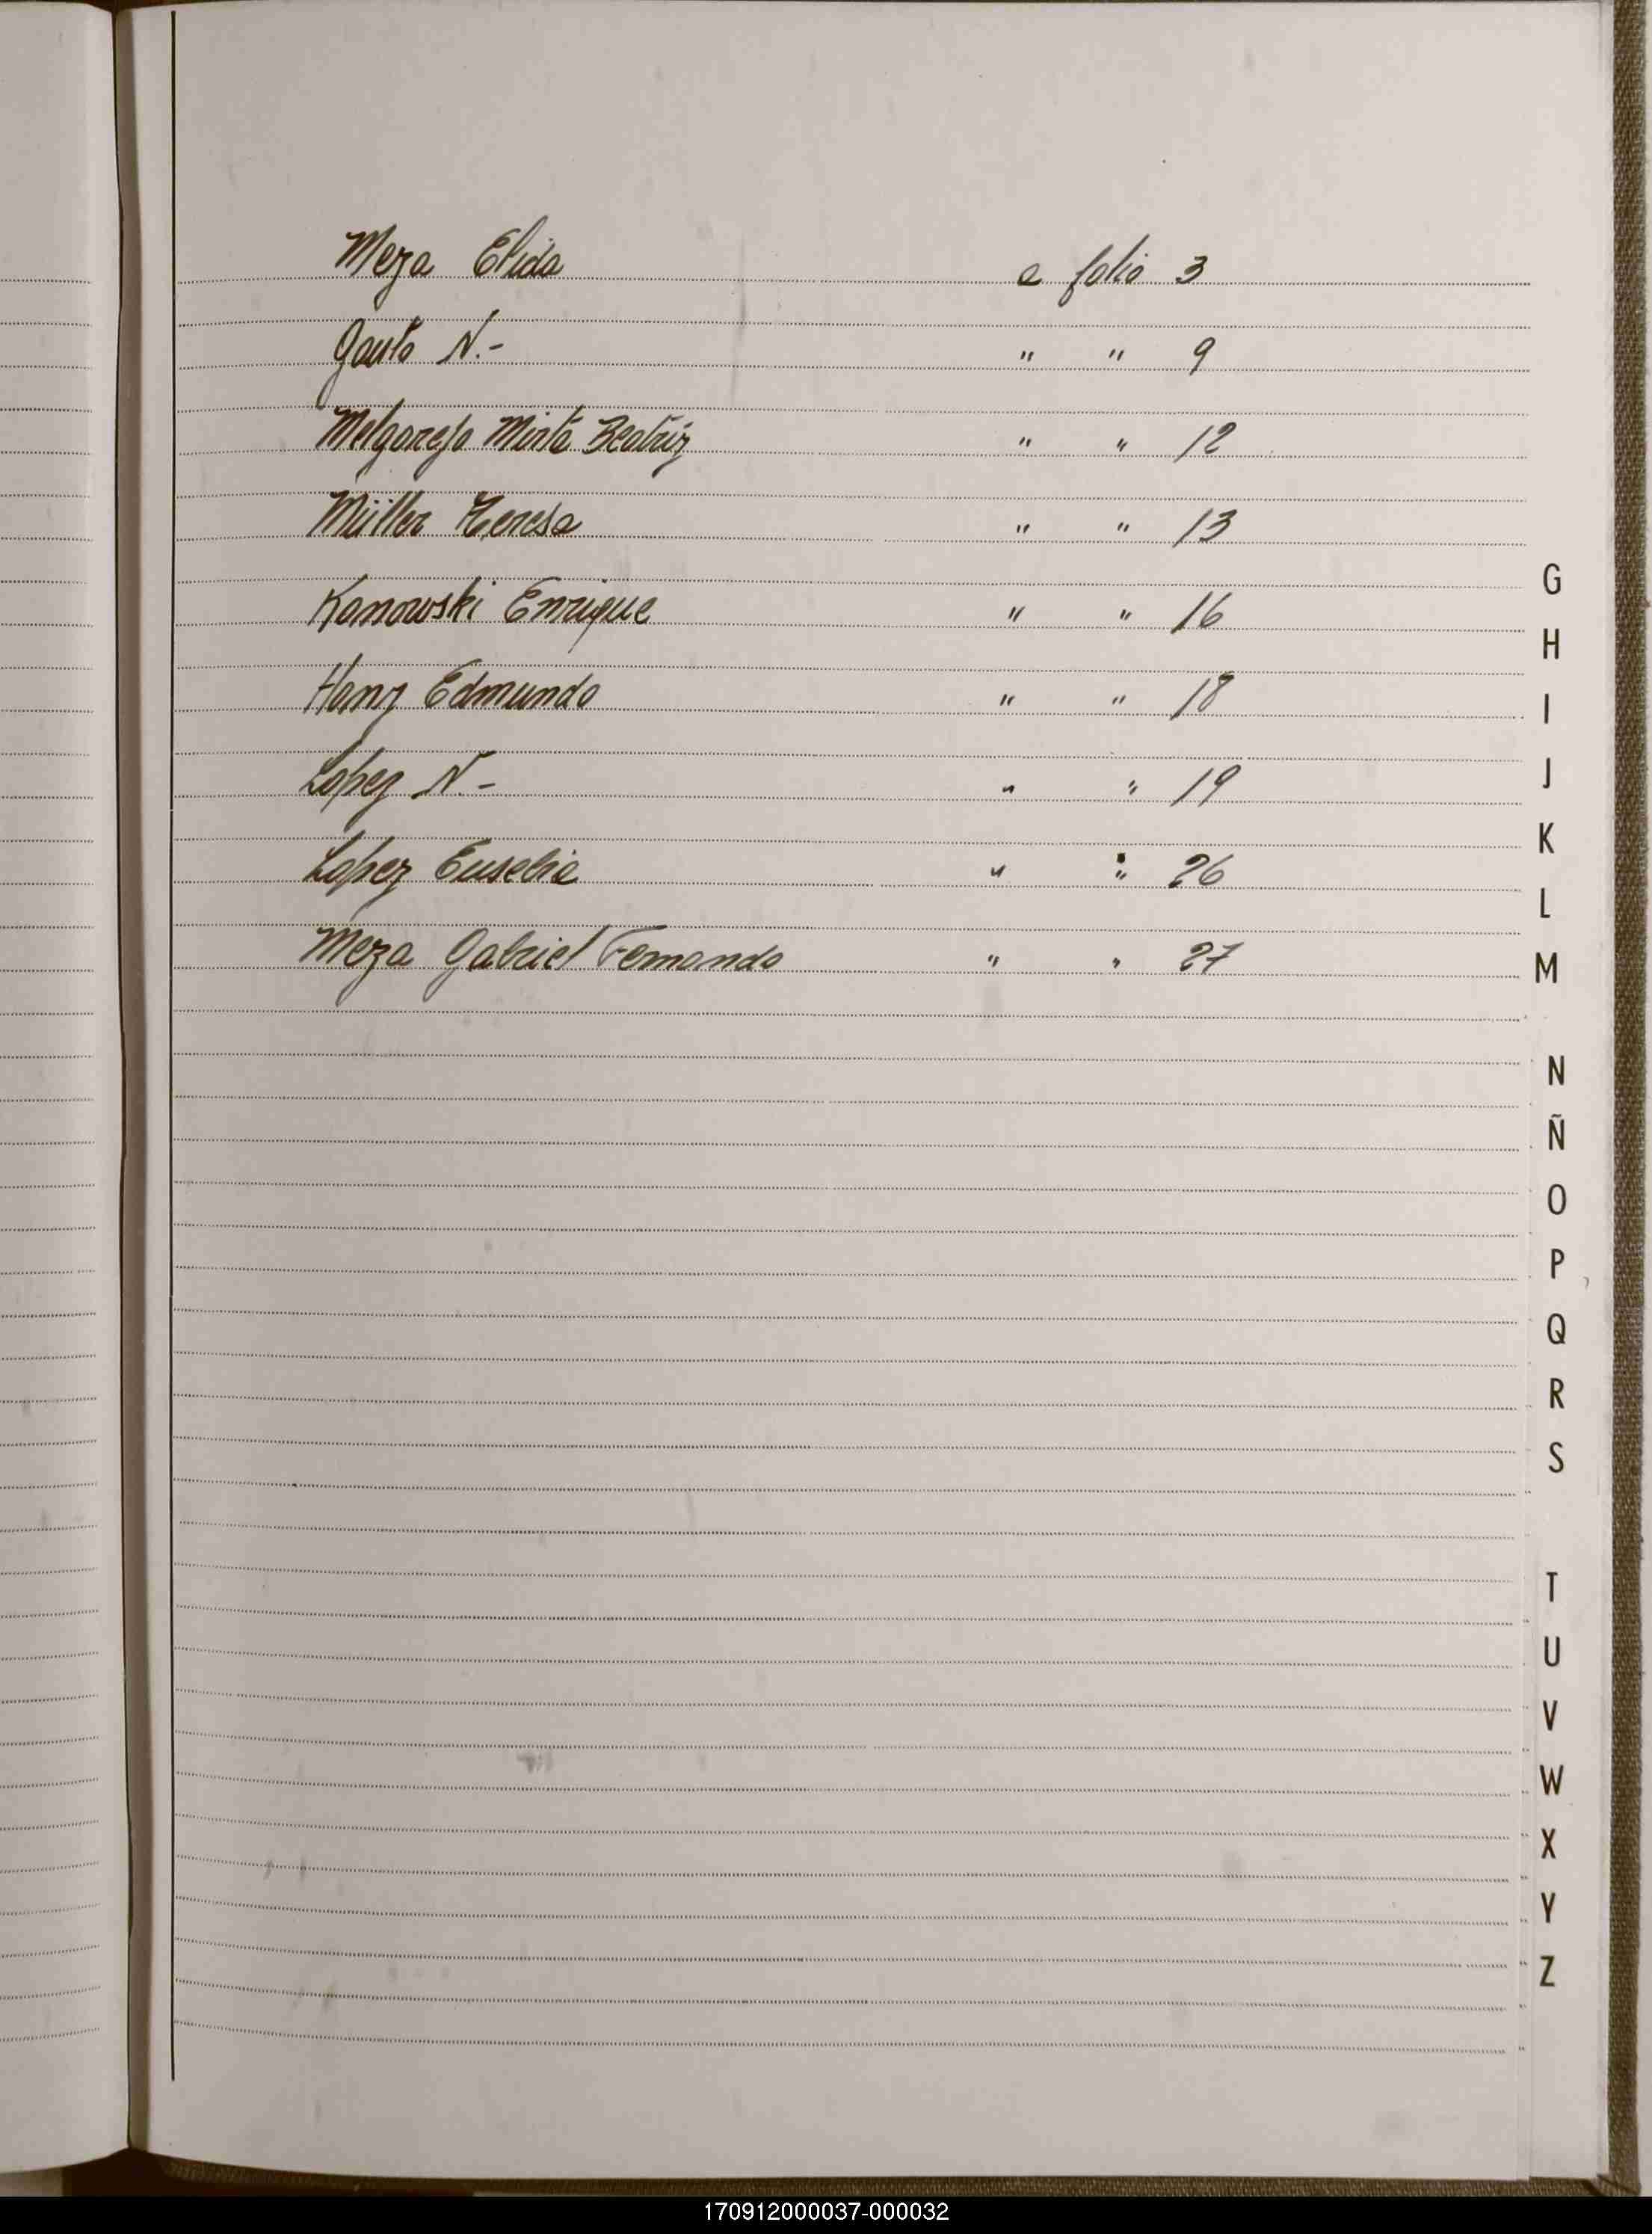 Meza Elida a folio 3
Gauto N.- " " 9
Melgarejo Mirta Beatriz " " 12
Müller Teresa " " 13
Kanowski Enrique " " 16
Hanz Edmundo " " 18
Lopez N.- " " 19
Lopez Eusebia " " 26
Meza Gabriel Fernando " " 27
G
H
I
J
K
L
M
N
Ñ
O
P
Q
R
S
T
U
V
W
X
Y
Z
170912000037-000032